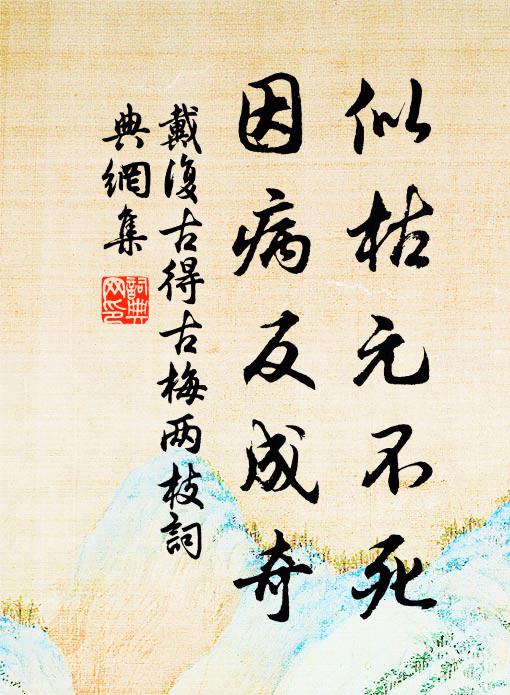 似枯元不死
因病反成奇
戴復古得古梅两枝詞
典網集
詞典
网印